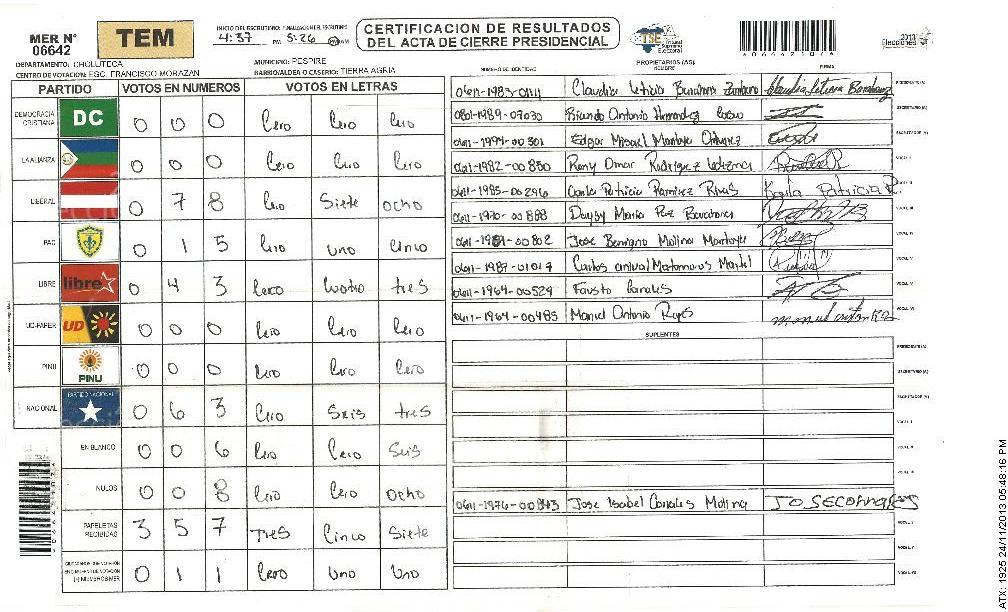 MER N° 06642
TEM
INICIO DE ESCRUTINIO: 4:37 PM FINALIZACION EL ESCRUTINIO 5:26 PM
CERTIFICACION DE RESULTADOS DEL ACTA DE CIERRE PRESIDENCIAL
TSE Tribunal Supremo Electoral
2013 Elecciones
DEPARTAMENTO: CHOLUTECA
MUNICIPIO: PESPIRE
CENTRO DE VOTACION: ESC. FRANCISCO MORAZAN
BARRIO/ALDEA O CASERIO: TIERRA AGRIA
PARTIDO VOTOS EN NUMEROS VOTOS EN LETRAS
DEMOCRACIA CRISTIANA DC 0 0 0 Cero Cero Cero
LA ALIANZA 0 0 0 Cero Cero Cero
LIBERAL 0 7 8 Cero Siete ocho
PAC 0 1 5 Cero uno Cinco
LIBRE libre 0 4 3 Cero Cuatro tres
UD-FAPER UD 0 0 0 Cero Cero Cero
PINU PINU 0 0 0 Cero Cero Cero
NACIONAL PARTIDO NACIONAL 0 6 3 Cero Seis tres
EN BLANCO 0 0 6 Cero Cero Seis
NULOS 0 0 8 Cero Cero Ocho
PAPELETAS RECIBIDAS 3 5 7 Tres Cinco Siete
0 1 1 Cero Uno Uno
NUMERO DE IDENTIDAD PROPIETARIOS (AS) NOMBRE FIRMA
0611-1983-01111 Claudia Leticia PRESIDENTE (A)
0801-1989-07030 Ricardo Antonio Hernandez SECRETARIO (A)
0611-1994-00301 Edgar Misael Montoya Ordoñez ESCRUTADOR (A)
0611-1982-00850 Rony Omar Rodriguez VOCAL I
0611-1985-00296 Carla Patricia Ramirez Rivas Karla Patricia R.
0611-1970-00888 Daysy Maria Paz VOCAL III
0611-1989-00802 Jose Benigno Molina Montoya
0611-1987-01017 Carlos VOCAL V
0611-1964-00529 Fausto Canales
0611-1964-00485 Manuel Antonio Reyes
SUPLENTES
PRESIDENTE (A)
SECRETARIO (A)
ESCRUTADOR (A)
VOCAL I
0611-1976-00843 Jose Isabel Canales Molina
ATX: 1925 24/11/2013 05:48:16 PM